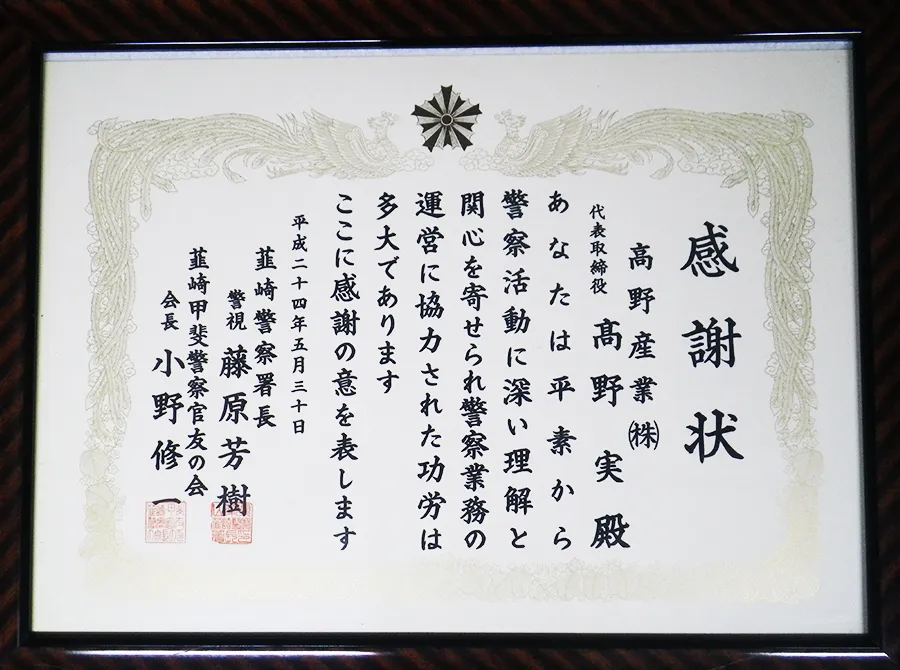 感謝状
高野産業㈱
代表取締役 髙野実殿
あなたは平素から
警察活動に深い理解と
関心を寄せられ警察業務の
運営に協力された功労は
多大であります
ここに感謝の意を表します
平成二十四年五月三十日
韮崎警察署長
警視 藤原芳樹
韮崎甲斐警察官友の会
会長 小野修一